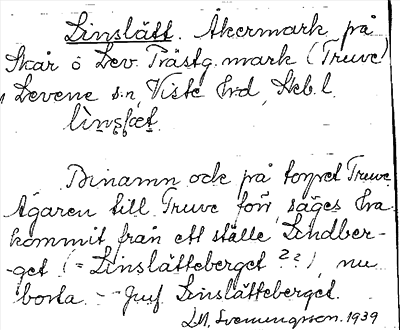 Linslätt. Åkermark på
Skår ö Lev. Prästg. mark (Truve)
Levene s:n, Viste hrd, Skb. l.
Binamn ock på torpet Truve.
Ägaren till Truve förr, säges ha
kommit från ett ställe Lindber-
-get (= Linslätteberget ??), nu
borta. - Jmf. Linslätteberget.
1939